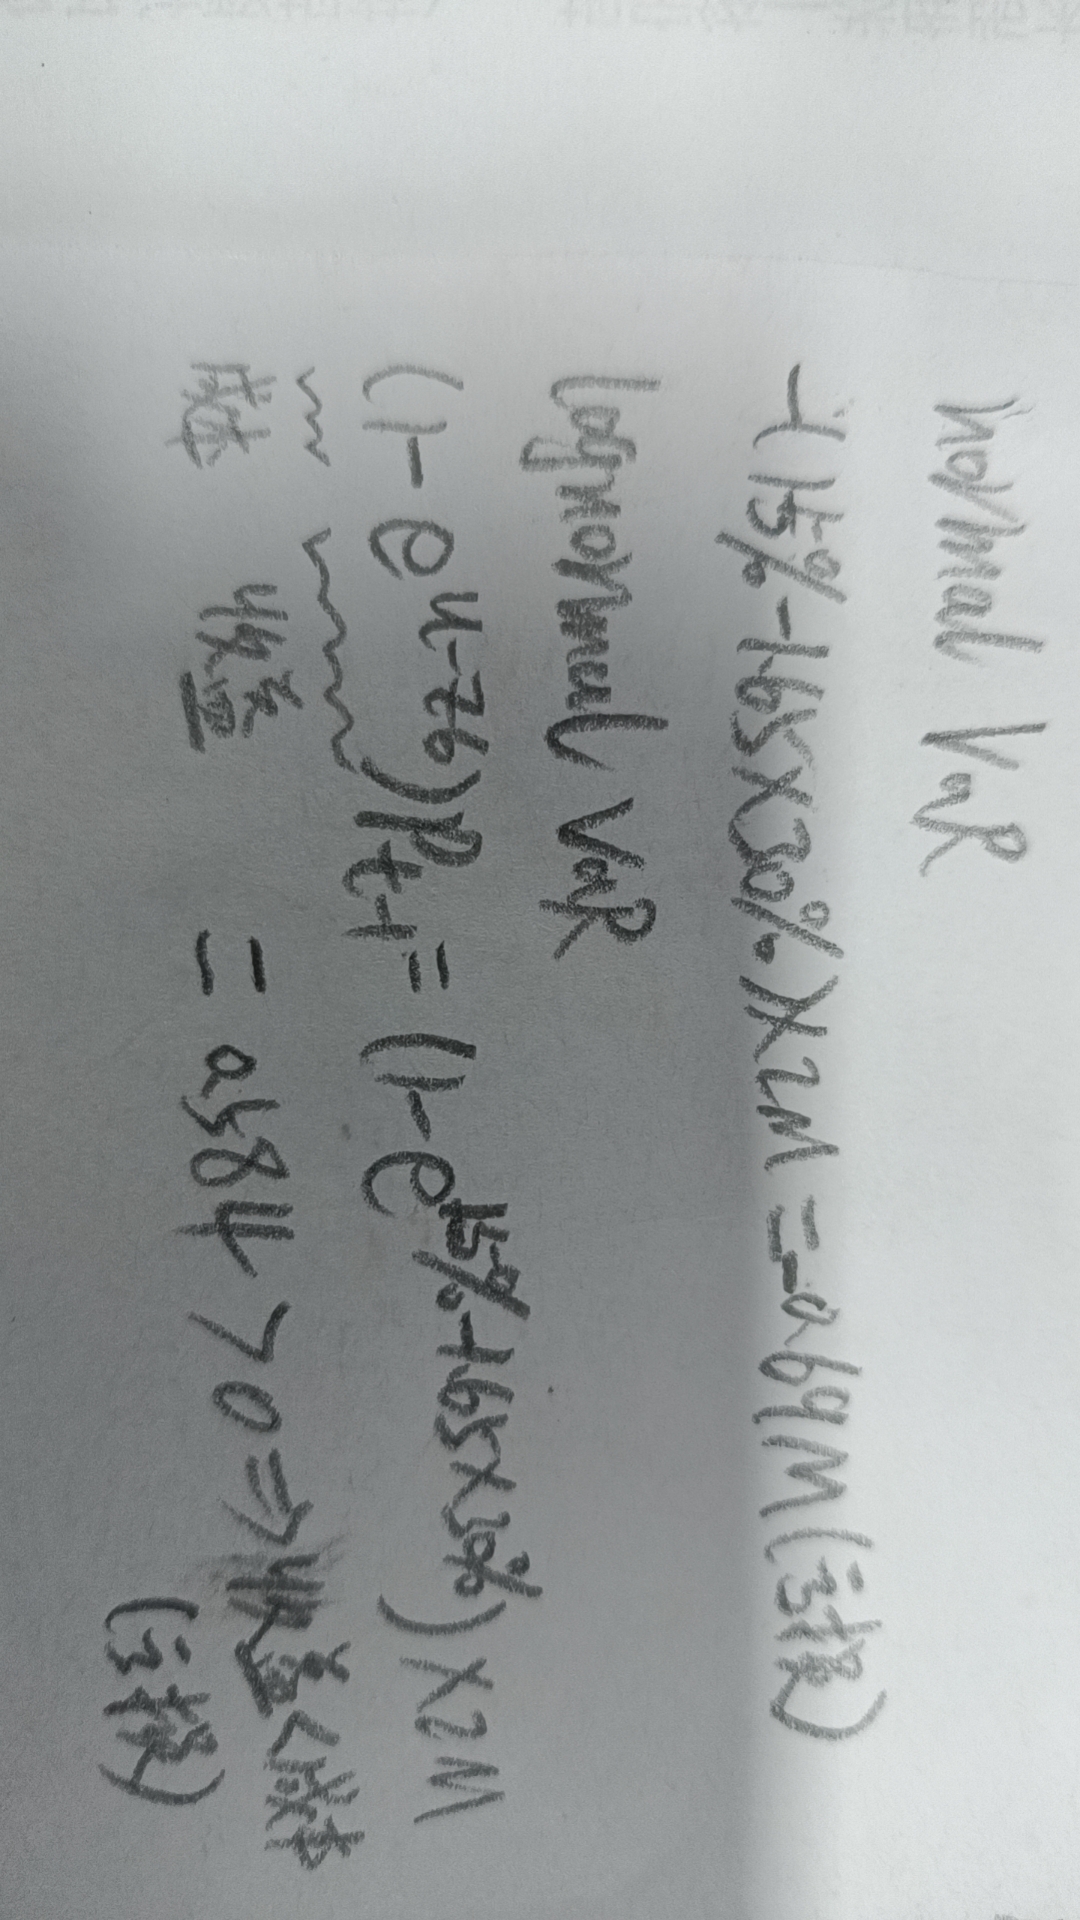 normal VaR
-(15%-1.65×30%)×2M=-0.69M(亏损)
lognormal VaR
(1-e^μ-zσ)Pt-1=(1-e^15%-1.65×30%)×2M
成本
=0.584>0⇒
(亏损)